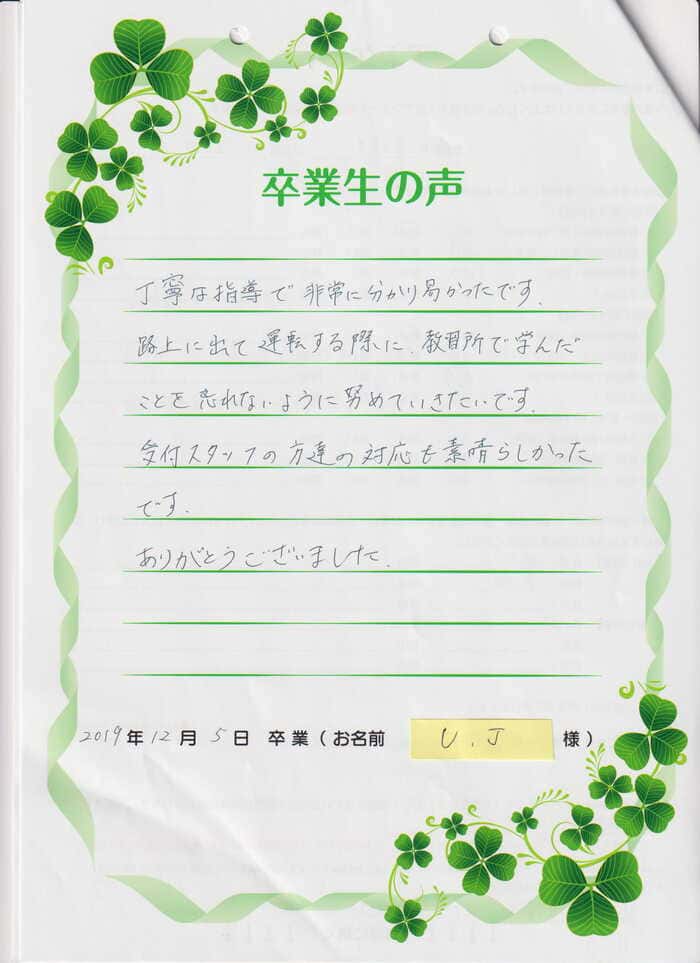 卒業生の声
丁寧な指導で非常に分かり易かったです.
路上に出て運転する際に、教習所で学んだ
ことを忘れないように努めていきたいです.
受付スタッフの方達の対応も素晴らしかった
です.
ありがとうございました.
2019年12月5日 卒業(お名前 U.J 様)